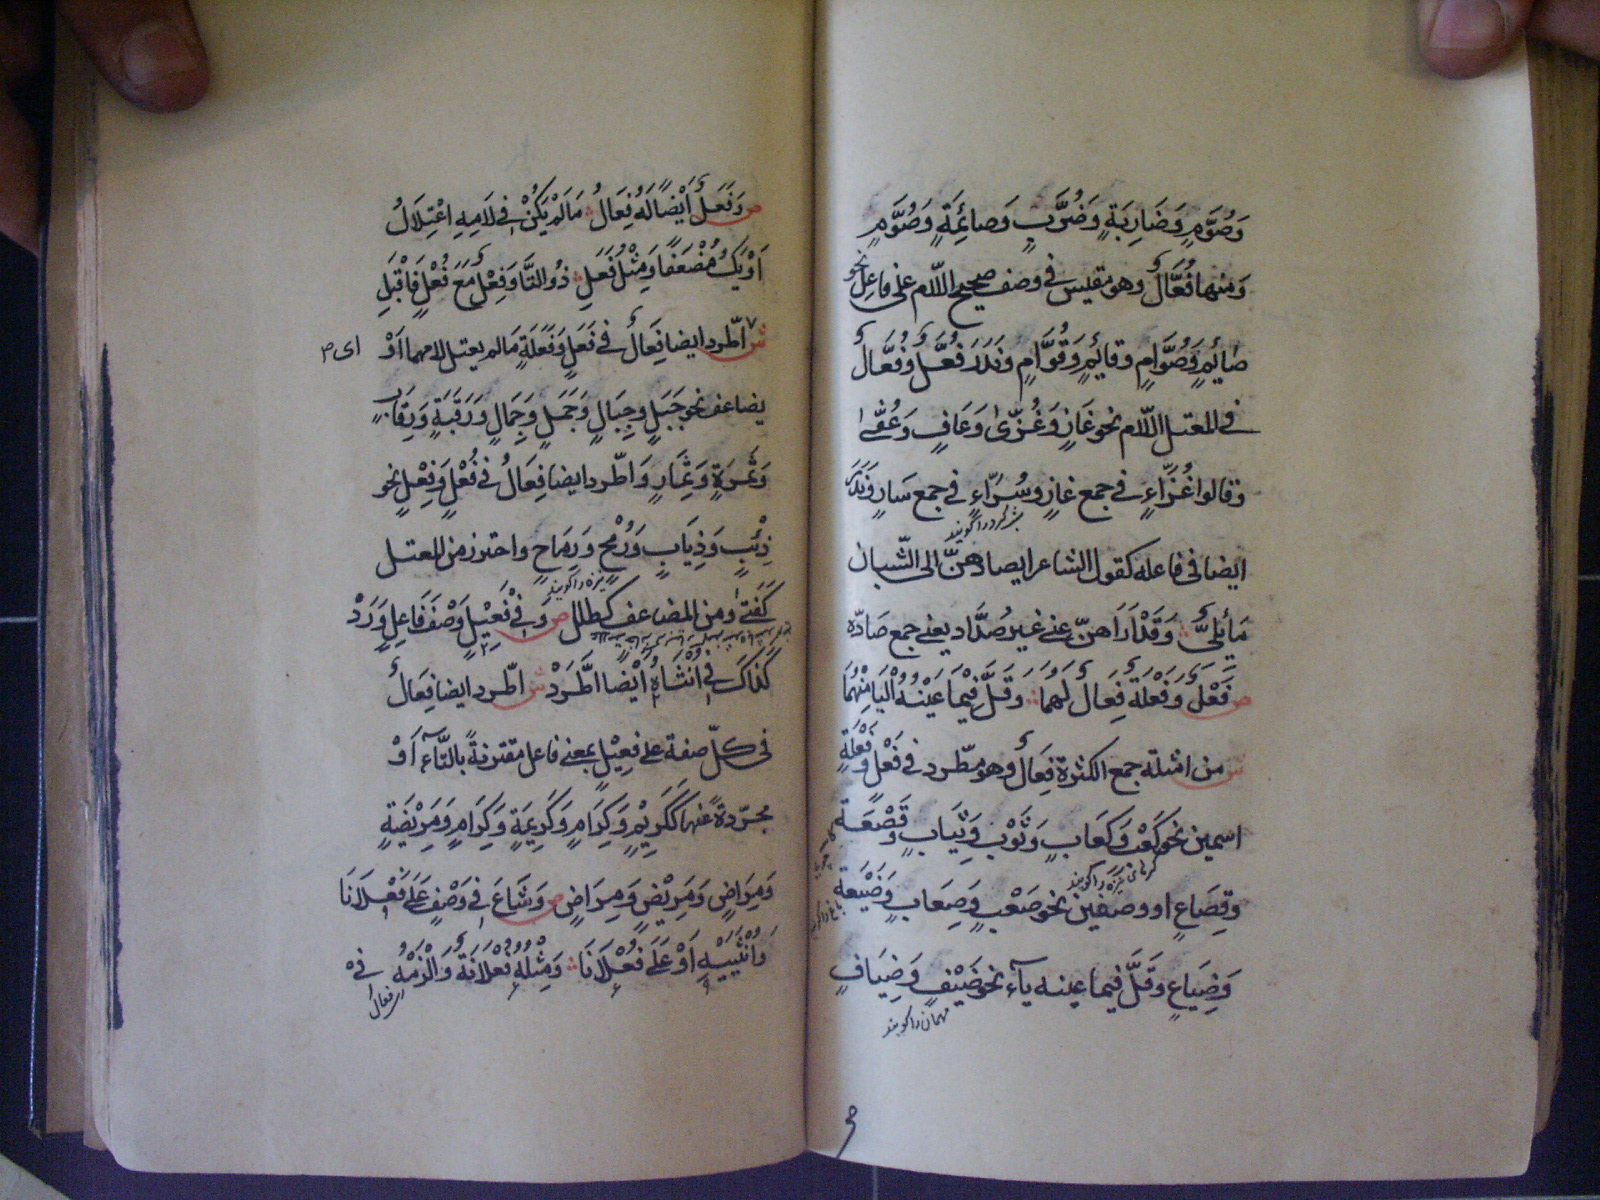 وَصُوَّمٍ وَضَارِبَةٍ وَضُرَّبٍ وَصائِمَةٍ وَصُوَّمٍ
وَمنها فُعَّالٌ وهو مقيس في وصف صحيح اللّام على فاعِلٍ نحو
صٰائمٍ وَصُوَّامٍ وقائمٍ وَقُوَّامٍ وَنَدَرَ فُعَّلٌ وَفُعَّالٌ
في المعتل اللّام نحو غَازٍ وَغُزّىً وَعَافٍ وَعُفّىً
وَقالوا غُزَّاءٍ في جمع غازٍ وسُرَّاءٍ في جمع سَارٍ وَنَدَرَ
ايضا في فاعله كقول الشاعر ابصارهنّ الى الشّبان
مٰايِلَةٌ وَقَدْ اَرَاهنّ عنى غير صُدَّاد يعنى جمع صادّه
ص فَعْلٌ وَفَعْلَةٌ فِعَالٌ لَهُمَا وَقَلَّ فِيْمَا عَيْنُهُ الْيَا مِنْهُمَا
ش من امثلة جمع الكثرة فِعَالٌ وهو مطّرد في فَعْلٍ وَفَعْلَةٍ
اسمين نحو كَعْبٍ وَكِعَابٍ وَثَوْبٍ وَثِيَابٍ وَقَصْعَةٍ
وقِصَاعٍ او وصفين نحو صَعْبٍ وَصِعَابٍ وَضَيْعَةٍ
وَضِيَاعٍ وَقَلَّ فيما عينه ياء نحو ضَيْفٍ وَضِيَافٍ
مهمان را گویند
ص وَفَعَلٌ اَيْضًا لَهُ فِعَالُ مَا لَمْ يَكُنْ فِي لَامِهِ اعْتِلَالُ
اَوْ يَكُ مُضْعَفًا وَمِثْلُ فَعَلِ ذُو التَّا وَفِعْلٌ مَعَ فُعْلٍ فَاقْبَلِ
ش اطّرد ايضا فِعَالٌ في فَعَلٍ وَفَعَلَةٍ مَا لم يعتل لامهما اَوْ
يضاعف نحو جَبَلٍ وجِبَالٍ وَجَمَلٍ وَجِمَالٍ وَرَقَبَةٍ وَرِقَابٍ
وَثَمَرَةٍ وَثِمَارٍ وَاطّرد ايضا فِعَالُ في فُعْلٍ وَفِعْلٍ نحو
ذِئْبٍ وَذِيَابٍ وَرُمْحٍ وَرِمَاحٍ واحترز من المعتل
كَفَتىً ومن المضاعف كطلل ص وَفِيْ فَعِيْلٍ وَصْفَ فَاعِلٍ وَرَدْ
كَذَاكَ فِي اُنْثَاهُ اَيْضًا اطَّرَدْ ش اطّرد ايضا فِعَالٌ
في كلّ صفة على فعِيْلٍ بمعنى فاعل مقترنةً بالتّاء اَوْ
مجرّدة عنها كَكَرِيْمٍ وَكِرَامٍ وَكَرِيمَةٍ وَكِرَامٍ وَمَرِيْضَةٍ
وَمِرَاضٍ وَمَرِيْضٍ وَمِرَاضٍ ص وَشَاعَ فِي وَصْفٍ عَلَى فَعْلَانَا
وَاُنْثَيَيْهِ اَوْ عَلَى فُعْلَانَا وَمِثْلُهُ فُعْلَانَةٌ وَالْزَمْهُ فِي